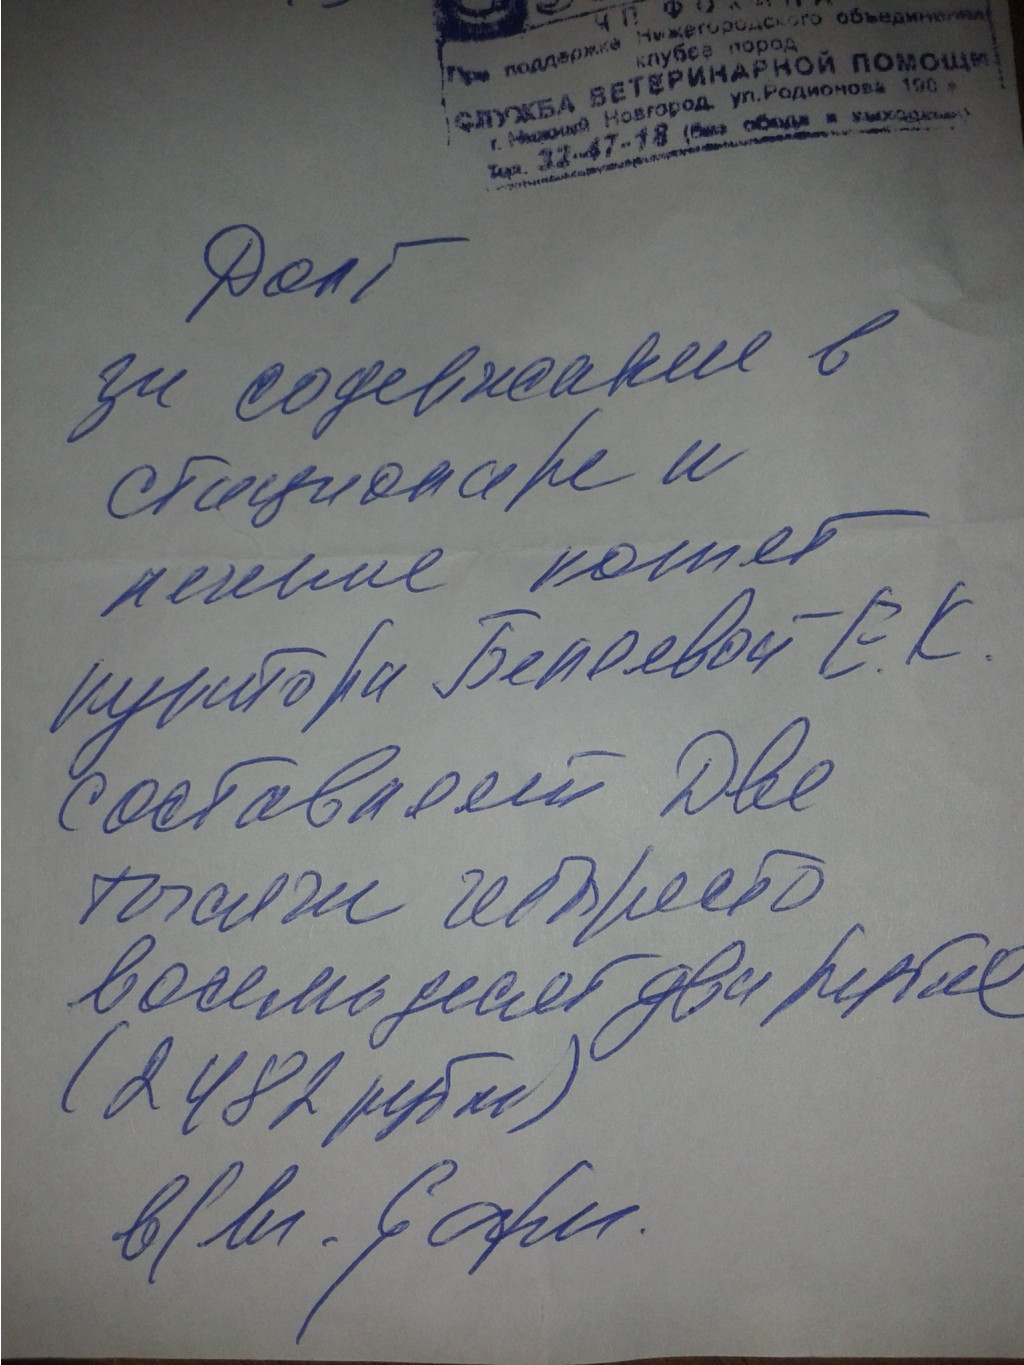 При поддержке Нижегородского объединения
клубов пород
СЛУЖБА ВЕТЕРИНАРНОЙ ПОМОЩИ
г. Нижний Новгород, ул.Родионова 190
Тел. 32-47-18 (без обеда и выходных)
Долг
за содержание в
стационаре и
лечение котят
куратора Беляевой Е.К.
составляет Две
тысячи четыреста
восемьдесят два рубля
(2482 рубля)
в/вр.